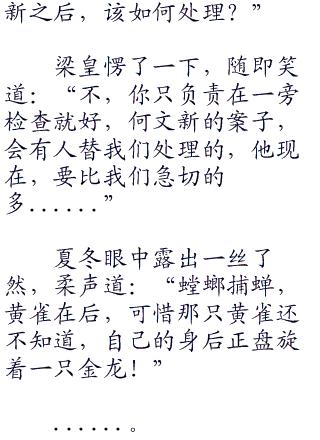 新之后，该如何处理？”
梁皇愣了一下，随即笑
道：“不，你只负责在一旁
检查就好，何文新的案子，
会有人替我们处理的，他现
在，要比我们急切的
多......”
夏冬眼中露出一丝了
然，柔声道：“螳螂捕蝉，
黄雀在后，可惜那只黄雀还
不知道，自己的身后正盘旋
着一只金龙！”
......。